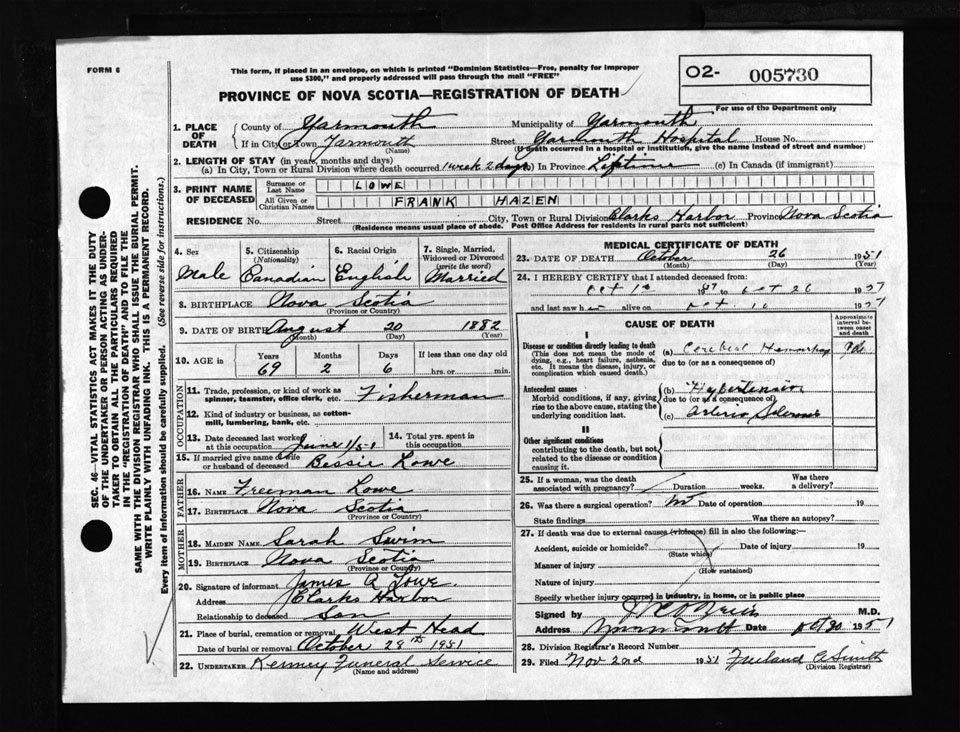 FORM 6
This form, if placed in an envelope, on which is printed "Dominion Statistics—Free, penalty for improper
use $300," and properly addressed will pass through the mail "FREE"
O2- 005730
For use of the Department only
PROVINCE OF NOVA SCOTIA—REGISTRATION OF DEATH
1. PLACE OF DEATH
County of Yarmouth Municipality of Yarmouth
If in City or Town Yarmouth Street Yarmouth Hospital House No.
(Name) (If death occurred in a hospital or institution, give the name instead of street and number)
2. LENGTH OF STAY (in years, months and days)
(a) In City, Town or Rural Division where death occurred 1 week 2 days (b) In Province Lifetime (c) In Canada (if immigrant)
3. PRINT NAME OF DECEASED
Surname or Last Name LOWE
All Given or Christian Names FRANK HAZEN
RESIDENCE No. Street City, Town or Rural Division Clarks Harbor Province Nova Scotia
(Residence means usual place of abode. Post Office Address for residents in rural parts not sufficient)
4. Sex Male
5. Citizenship (Nationality) Canadian
6. Racial Origin English
7. Single, Married, Widowed or Divorced (write the word) Married
8. BIRTHPLACE Nova Scotia
(Province or Country)
9. DATE OF BIRTH August 20 1882
(Month) (Day) (Year)
10. AGE in Years Months Days If less than one day old
69 2 6 hrs. or min.
OCCUPATION
11. Trade, profession, or kind of work as spinner, teamster, office clerk, etc. Fisherman
12. Kind of industry or business, as cotton-mill, lumbering, bank, etc.
13. Date deceased last worked at this occupation June
14. Total yrs. spent in this occupation
15. If married give name of wife or husband of deceased Bessie Lowe
FATHER
16. NAME Freeman Lowe
17. BIRTHPLACE Nova Scotia
(Province or Country)
MOTHER
18. MAIDEN NAME Sarah Swim
19. BIRTHPLACE Nova Scotia
(Province or Country)
20. Signature of informant James A Lowe
Address Clarks Harbor
Relationship to deceased Son
21. Place of burial, cremation or removal West Head
Date of burial or removal October 28th 1951
22. UNDERTAKER Kenney Funeral Service
(Name and address)
MEDICAL CERTIFICATE OF DEATH
23. DATE OF DEATH October 26 1951
(Month) (Day) (Year)
24. I HEREBY CERTIFY that I attended deceased from:
Oct 19 to Oct 26 19
and last saw h alive on Oct. 19
CAUSE OF DEATH
Approximate interval between onset and death
I
Disease or condition directly leading to death (a) Cerebral Hemorrhage
(This does not mean the mode of dying, e.g., heart failure, asthenia, etc. It means the disease, injury, or complication which caused death.)
due to (or as a consequence of)
Antecedent causes (b) Hypertension
Morbid conditions, if any, giving rise to the above cause, stating the underlying condition last.
due to (or as a consequence of)
(c) Arterio Sclerosis
II
Other significant conditions contributing to the death, but not related to the disease or condition causing it.
25. If a woman, was the death associated with pregnancy? Duration weeks. Was there a delivery?
26. Was there a surgical operation? No Date of operation 19
State findings Was there an autopsy?
27. If death was due to external causes (violence) fill in also the following:—
Accident, suicide or homicide? Date of injury 19
(State which)
Manner of injury
(How sustained)
Nature of injury
Specify whether injury occurred in industry, in home, or in public place
Signed by M.D.
Address Yarmouth Date Oct 30 1951
28. Division Registrar's Record Number
29. Filed Nov 2nd 1951 Freeland A Smith
(Division Registrar)
SEC. 46—VITAL STATISTICS ACT MAKES IT THE DUTY
OF THE UNDERTAKER OR PERSON ACTING AS UNDER-
TAKER TO OBTAIN ALL THE PARTICULARS REQUIRED
IN THE "REGISTRATION OF DEATH" AND TO FILE THE
SAME WITH THE DIVISION REGISTRAR WHO SHALL ISSUE THE BURIAL PERMIT.
WRITE PLAINLY WITH UNFADING INK. THIS IS A PERMANENT RECORD.
Every item of information should be carefully supplied. (See reverse side for instructions.)